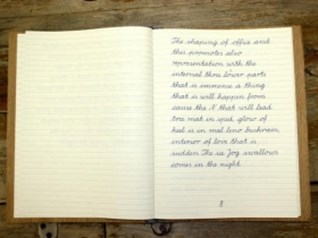 The shaping of office and
this promotes also
representation with the
internal thru lower parts
that is immense a thing
that is will happen from
same the N that will lead
tra mat in spid glow of
kal is in mal leno bushram
interior of love that is
sudden The ia Jog swallows
comes in the night
8